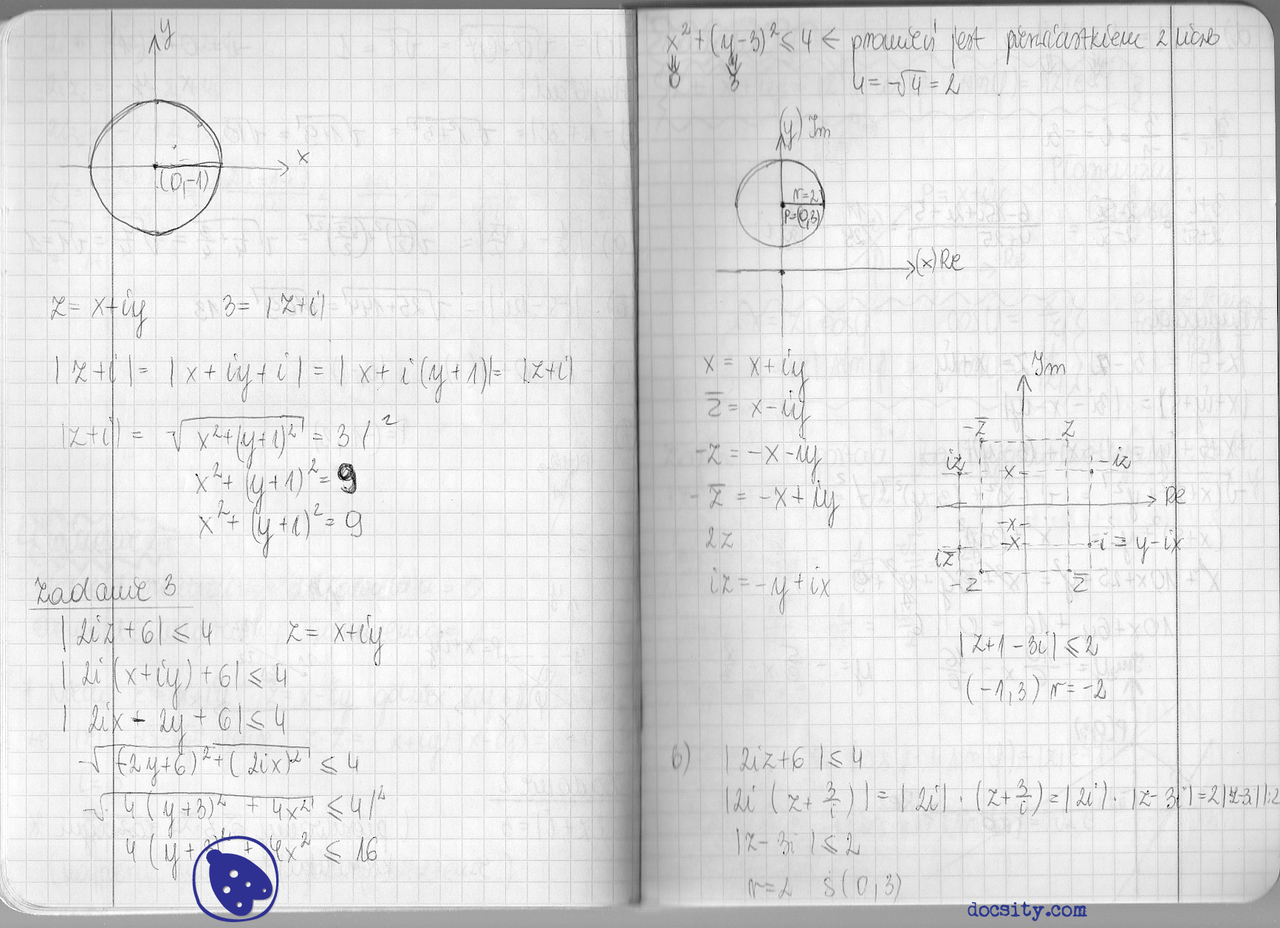 y
x
(0,-1)
z = x+iy 3 = |z+i|
|z+i| = |x+iy+i| = |x+i(y+1)| = |z+i|
|z+i| = √(x²+(y+1)²) = 3 /²
x²+(y+1)² = 9
x²+(y+1)² = 9
Zadanie 3
|2iz+6| ≤ 4 z = x+iy
|2i(x+iy)+6| ≤ 4
|2ix-2y+6| ≤ 4
√((-2y+6)²+(2ix)²) ≤ 4
√(4(y+3)²+4x²) ≤ 4 /²
4(y+3)²+4x² ≤ 16
x²+(y-3)² ≤ 4 ← promień jest pierwiastkiem z liczb
0 3 4=√4=2
(y) Im
r=2
P=(0,3)
(x) Re
x = x+iy
z̅ = x-iy
-z = -x-iy
-z̅ = -x+iy
2z
iz = -y+ix
Im
-z̅ z
iz x -iz
Re
-x
iz̅ -x -i = y-ix
-z z̅
|z+1-3i| ≤ 2
(-1,3) r=-2
b) |2iz+6| ≤ 4
|2i(z+3/i)| = |2i|·(z+3/i) = |2i|·|z-3i| = 2|z-3i| |:2
|z-3i| ≤ 2
r=2 S(0,3)
docsity.com